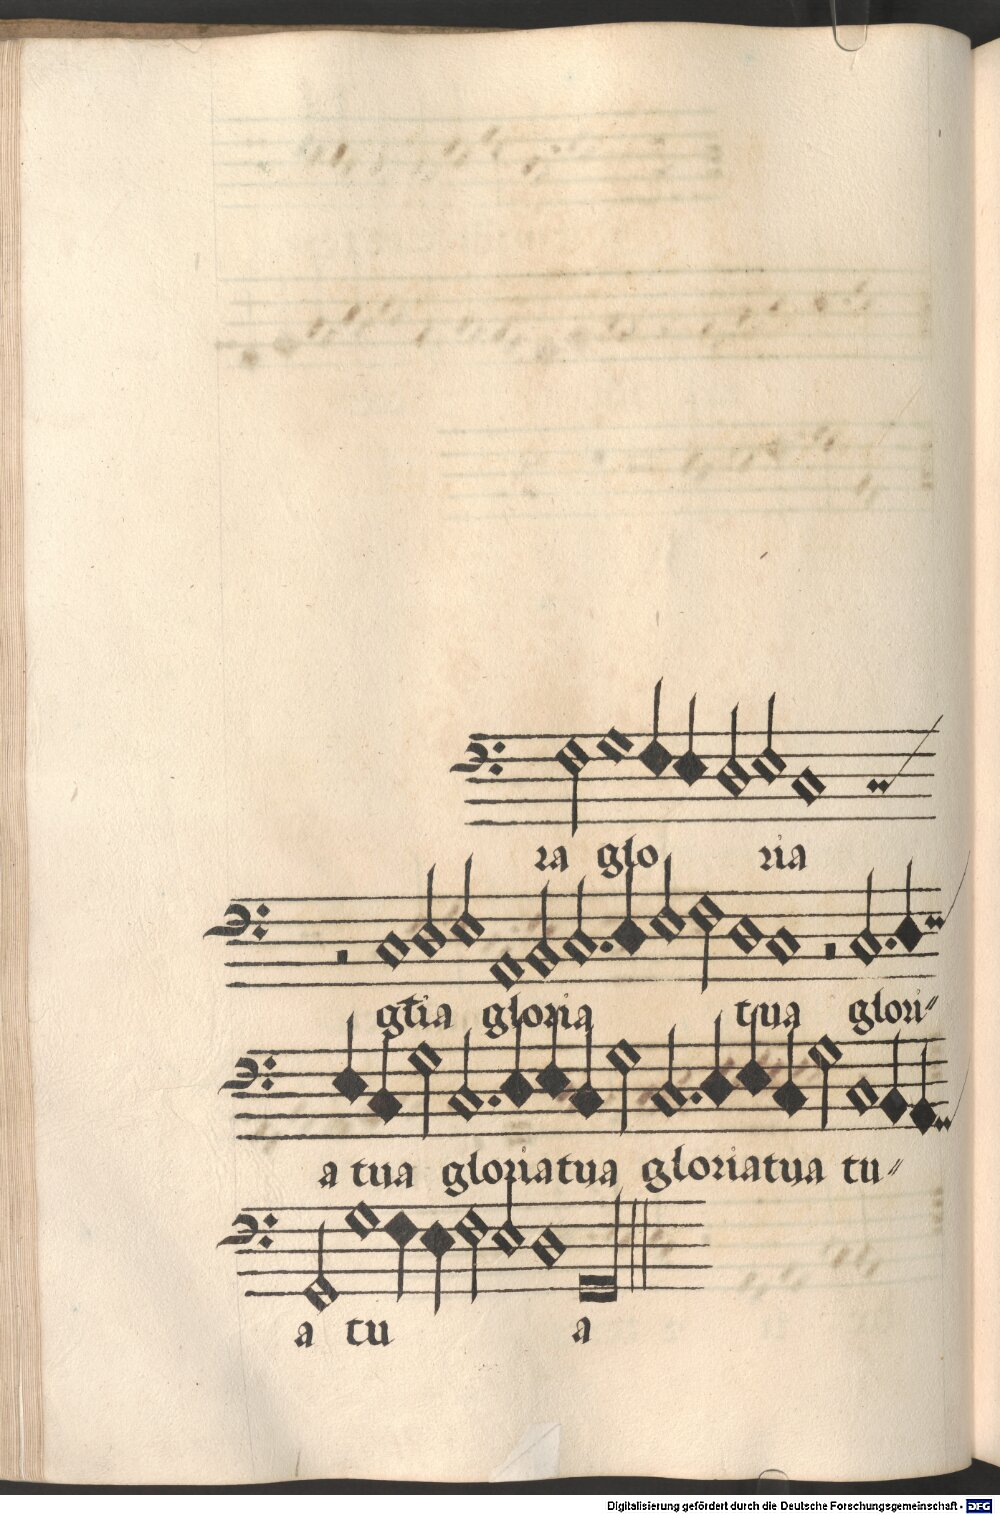 ra glo ria
gl̄ia gloria tua glori〃
a tua gloriatua gloriatua tu〃
a tu a
Digitalisierung gefördert durch die Deutsche Forschungsgemeinschaft - DFG